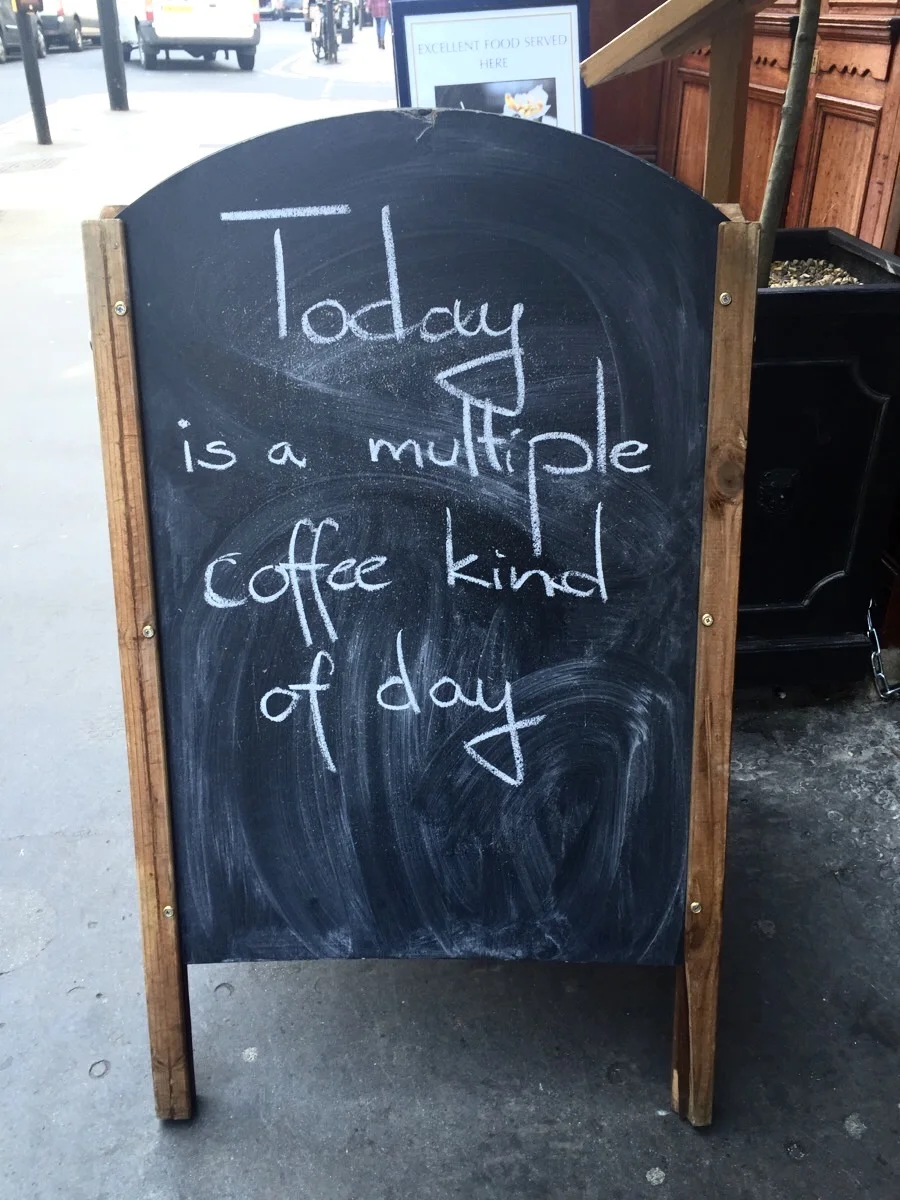 EXCELLENT FOOD SERVED
HERE
Today
is a multiple
coffee kind
of day